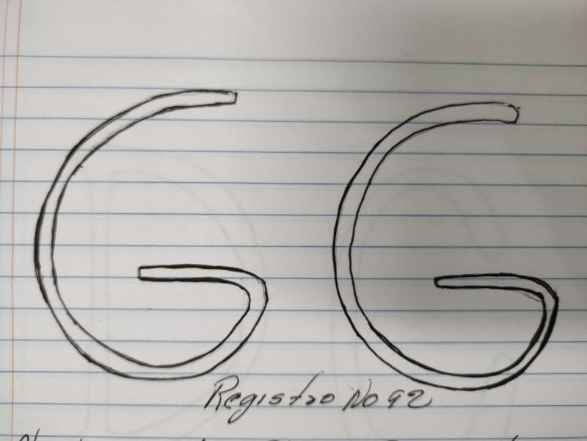 G G
Registro No 92